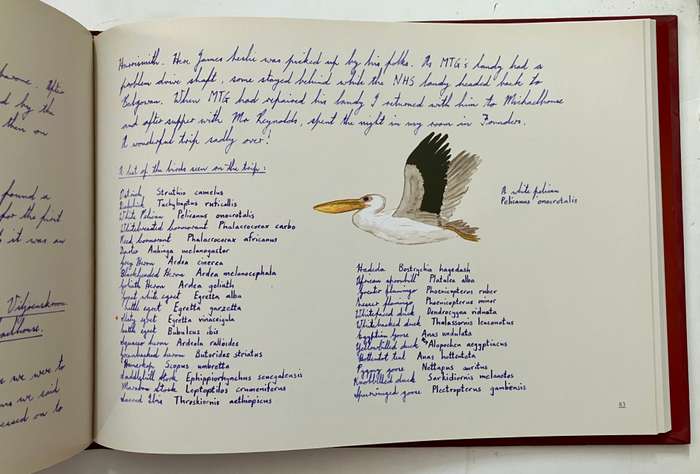 urone. After
d by the
then on
found a
for the first
t it was an
Viljoenskroon
aelhouse.
n we were to
ns we said
essed on to
Harrismith. Here James Leslie was picked up by his folks. As MTG's landy had a
problem drive shaft, some stayed behind while the NHS landy headed back to
Balgowan. When MTG had repaired his landy I returned with him to Michaelhouse
and after supper with Mr Reynolds, spent the night in my room in Founders.
A wonderful trip sadly over!
A list of the birds seen on the trip:
Ostrich Struthio camelus
Dabchick Tachybaptus ruficollis
White Pelican Pelicanus onocrotalis
Whitebreasted Cormorant Phalacrocorax carbo
Reed Cormorant Phalacrocorax africanus
Darter Anhinga melanogaster
Grey Heron Ardea cinerea
Blackheaded Heron Ardea melanocephala
Goliath Heron Ardea goliath
Great white egret Egretta alba
Little egret Egretta garzetta
Slaty egret Egretta vinaceigula
Cattle egret Bubulcus ibis
Squacco heron Ardeola ralloides
Greenbacked heron Butorides striatus
Hamerkop Scopus umbretta
Saddlebill Stork Ephippiorhynchus senegalensis
Marabou Stork Leptoptilos crumeniferus
Sacred Ibis Threskiornis aethiopicus
A white pelican
Pelicanus onocrotalis
Hadeda Bostrychia hagedash
African spoonbill Platalea alba
Greater flamingo Phoenicopterus ruber
Lesser flamingo Phoenicopterus minor
Whitefaced duck Dendrocygna viduata
Whitebacked duck Thalassornis leuconotus
Egyptian goose Anas undulata
Yellowbilled duck Alopochen aegyptiacus
Hottentot teal Anas hottentota
Pygmy goose Nettapus auritus
Knobbilled duck Sarkidiornis melanotos
Spurwinged goose Plectropterus gambensis
83